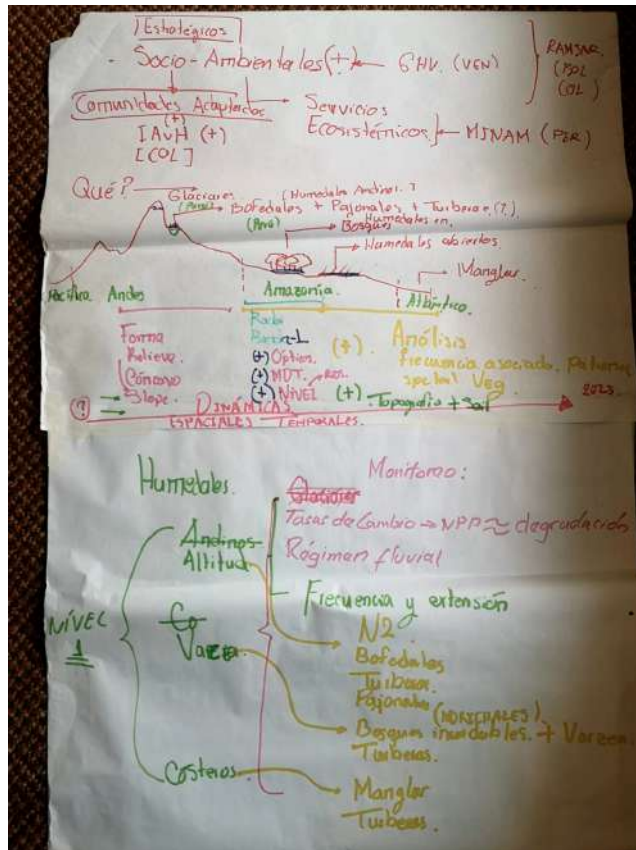 Estratégicos
- Socio-Ambientales (+) ← GHV. (VEN)
RAMSAR.
(BOL
COL)
Comunidades Adaptadas → Servicios
(+)
Ecosistémicos ← MINAM (PER)
IAvH (+)
[COL]
Qué?
Glaciares
(Humedales Andinos.?
(Perú) → Bofedales + Pajonales + Turberas (?)
(Perú)
→ Bosques
Humedales en.
→ Humedales abiertos.
→ Manglar.
Pacífico Andes
Amazonía.
Atlántico.
Radar
Banda-L
Forma
Relieve.
Cóncavo
Slope.
(+) Óptico.
(+) MDT.
(+) Nivel
(+).
Análisis
frecuencia asociado. Patrones
Veg
(+). Topografía + Soil
(?)
DINÁMICAS
2023.
ESPACIALES - TEMPORALES.
Humedales.
Monitoreo:
Glaciares
Tasas de Cambio → NPP ≈ degradación
Régimen fluvial
Andinos
Altitud
Frecuencia y extensión
NIVEL
1
Co
Varzea
N2.
Bofedales
Turberas.
Pajonales
(MORICHALES)
Bosques inundables. + Varzea.
Turberas.
Costeros.
Manglar
Turberas.